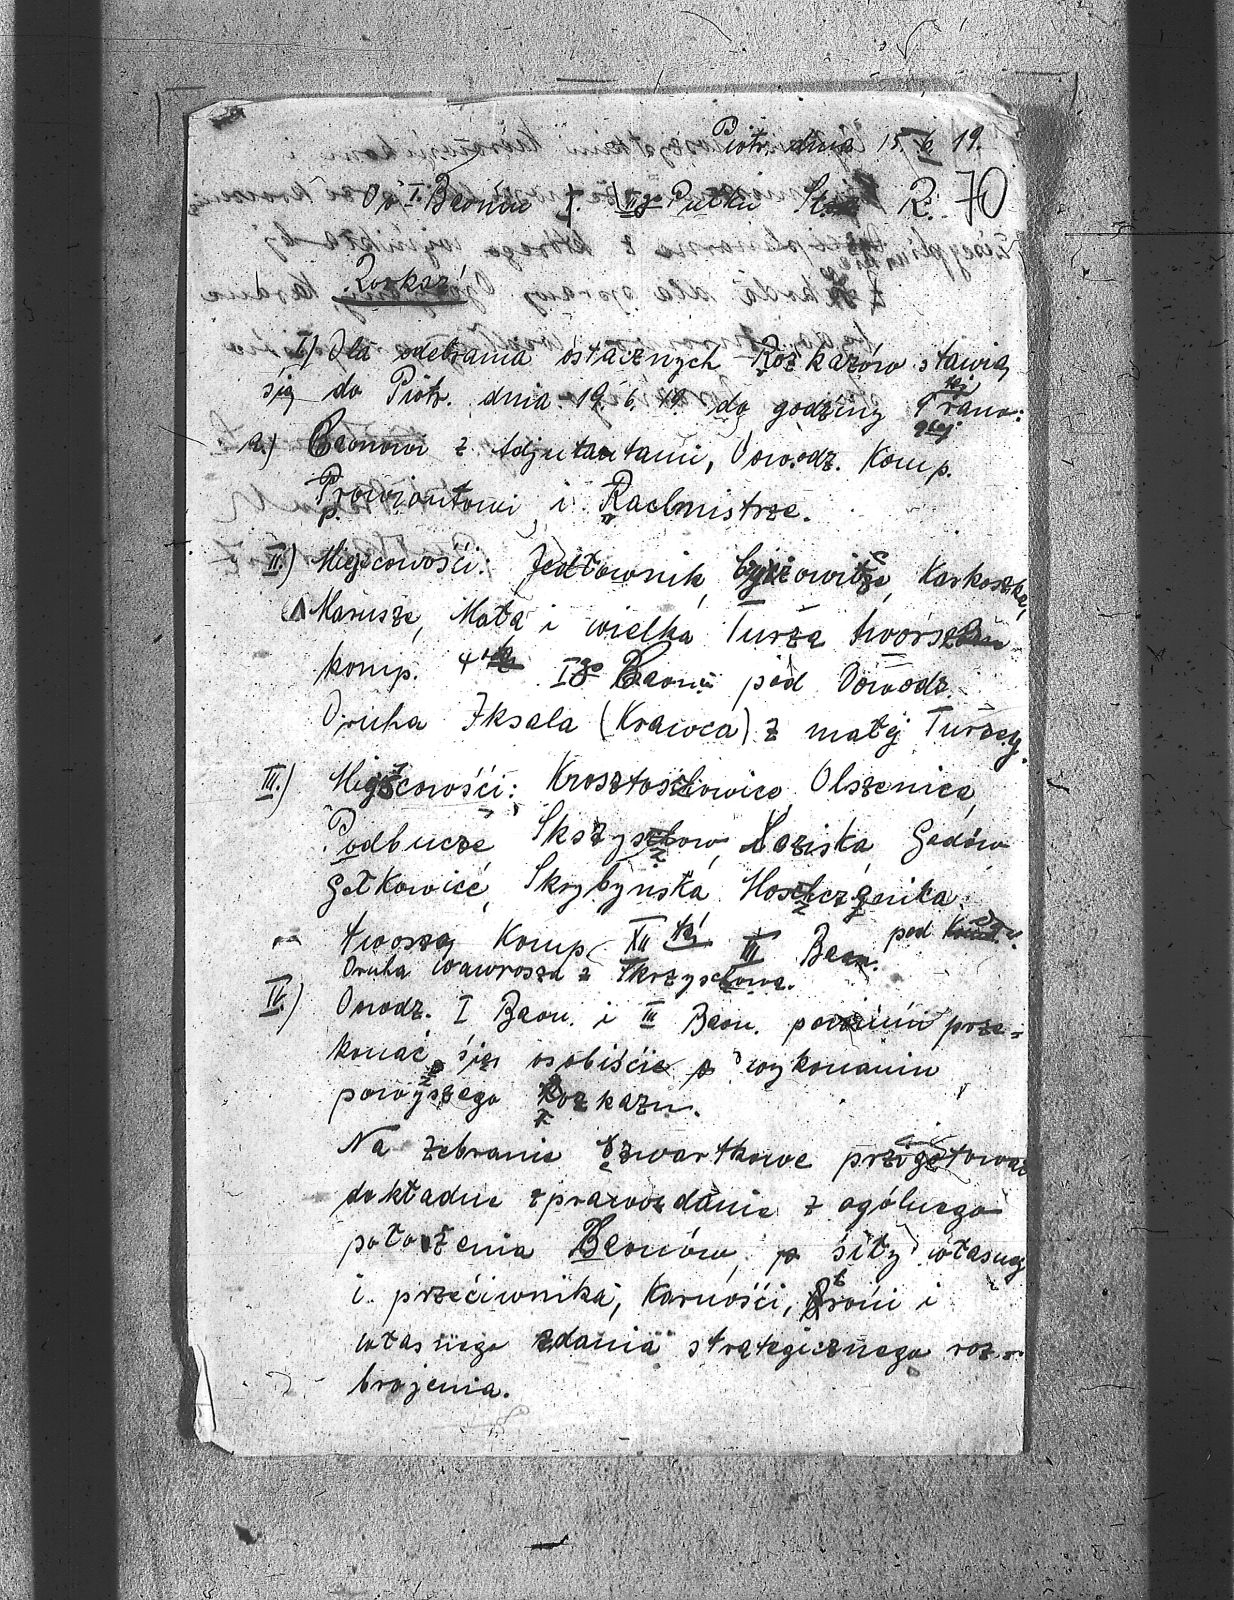 Piotr. dnia 15 6 19.
Do I. Baonu II go Pułku R. 70
Rozkaz
I) Dla odebrania ostacznych Rozkazów stawią
się do Piotr. dnia 19. 6. 19. do godziny 9 tej rano:
a.) Baonowi z Adjutantami, Dowodz. Komp.
Prowiantowi i Rachmistrze.
II.) Miejscowości: Jedłownik, Karkoszka,
Marusze, Mała i wielka Turza tworszą
komp. 4 tą I go Baonu pod Dowodz.
Druha Iksala (Krawca) z małej Turzey.
III.) Miejscowości: Krosztoszowice, Olszenice,
Podbucze, Łaziska, Godów
Gołkowice, Skrybyńska
tworzą Komp. XII tą III Baon. pod
Druha Wawrosza z Skrzyszowa.
IV.) Dowodz. I Baon. i III Baon. powinni prze-
konać się osobiście o wykonaniu
powyższego rozkazu.
Na zebranie czwartkowe przygotować
dokładne sprawozdanie z ogólnego
położenia Baonów, o siły własney
i przeciwnika, Karności, broni i
własnego zdania strategicznego roz-
brojenia.